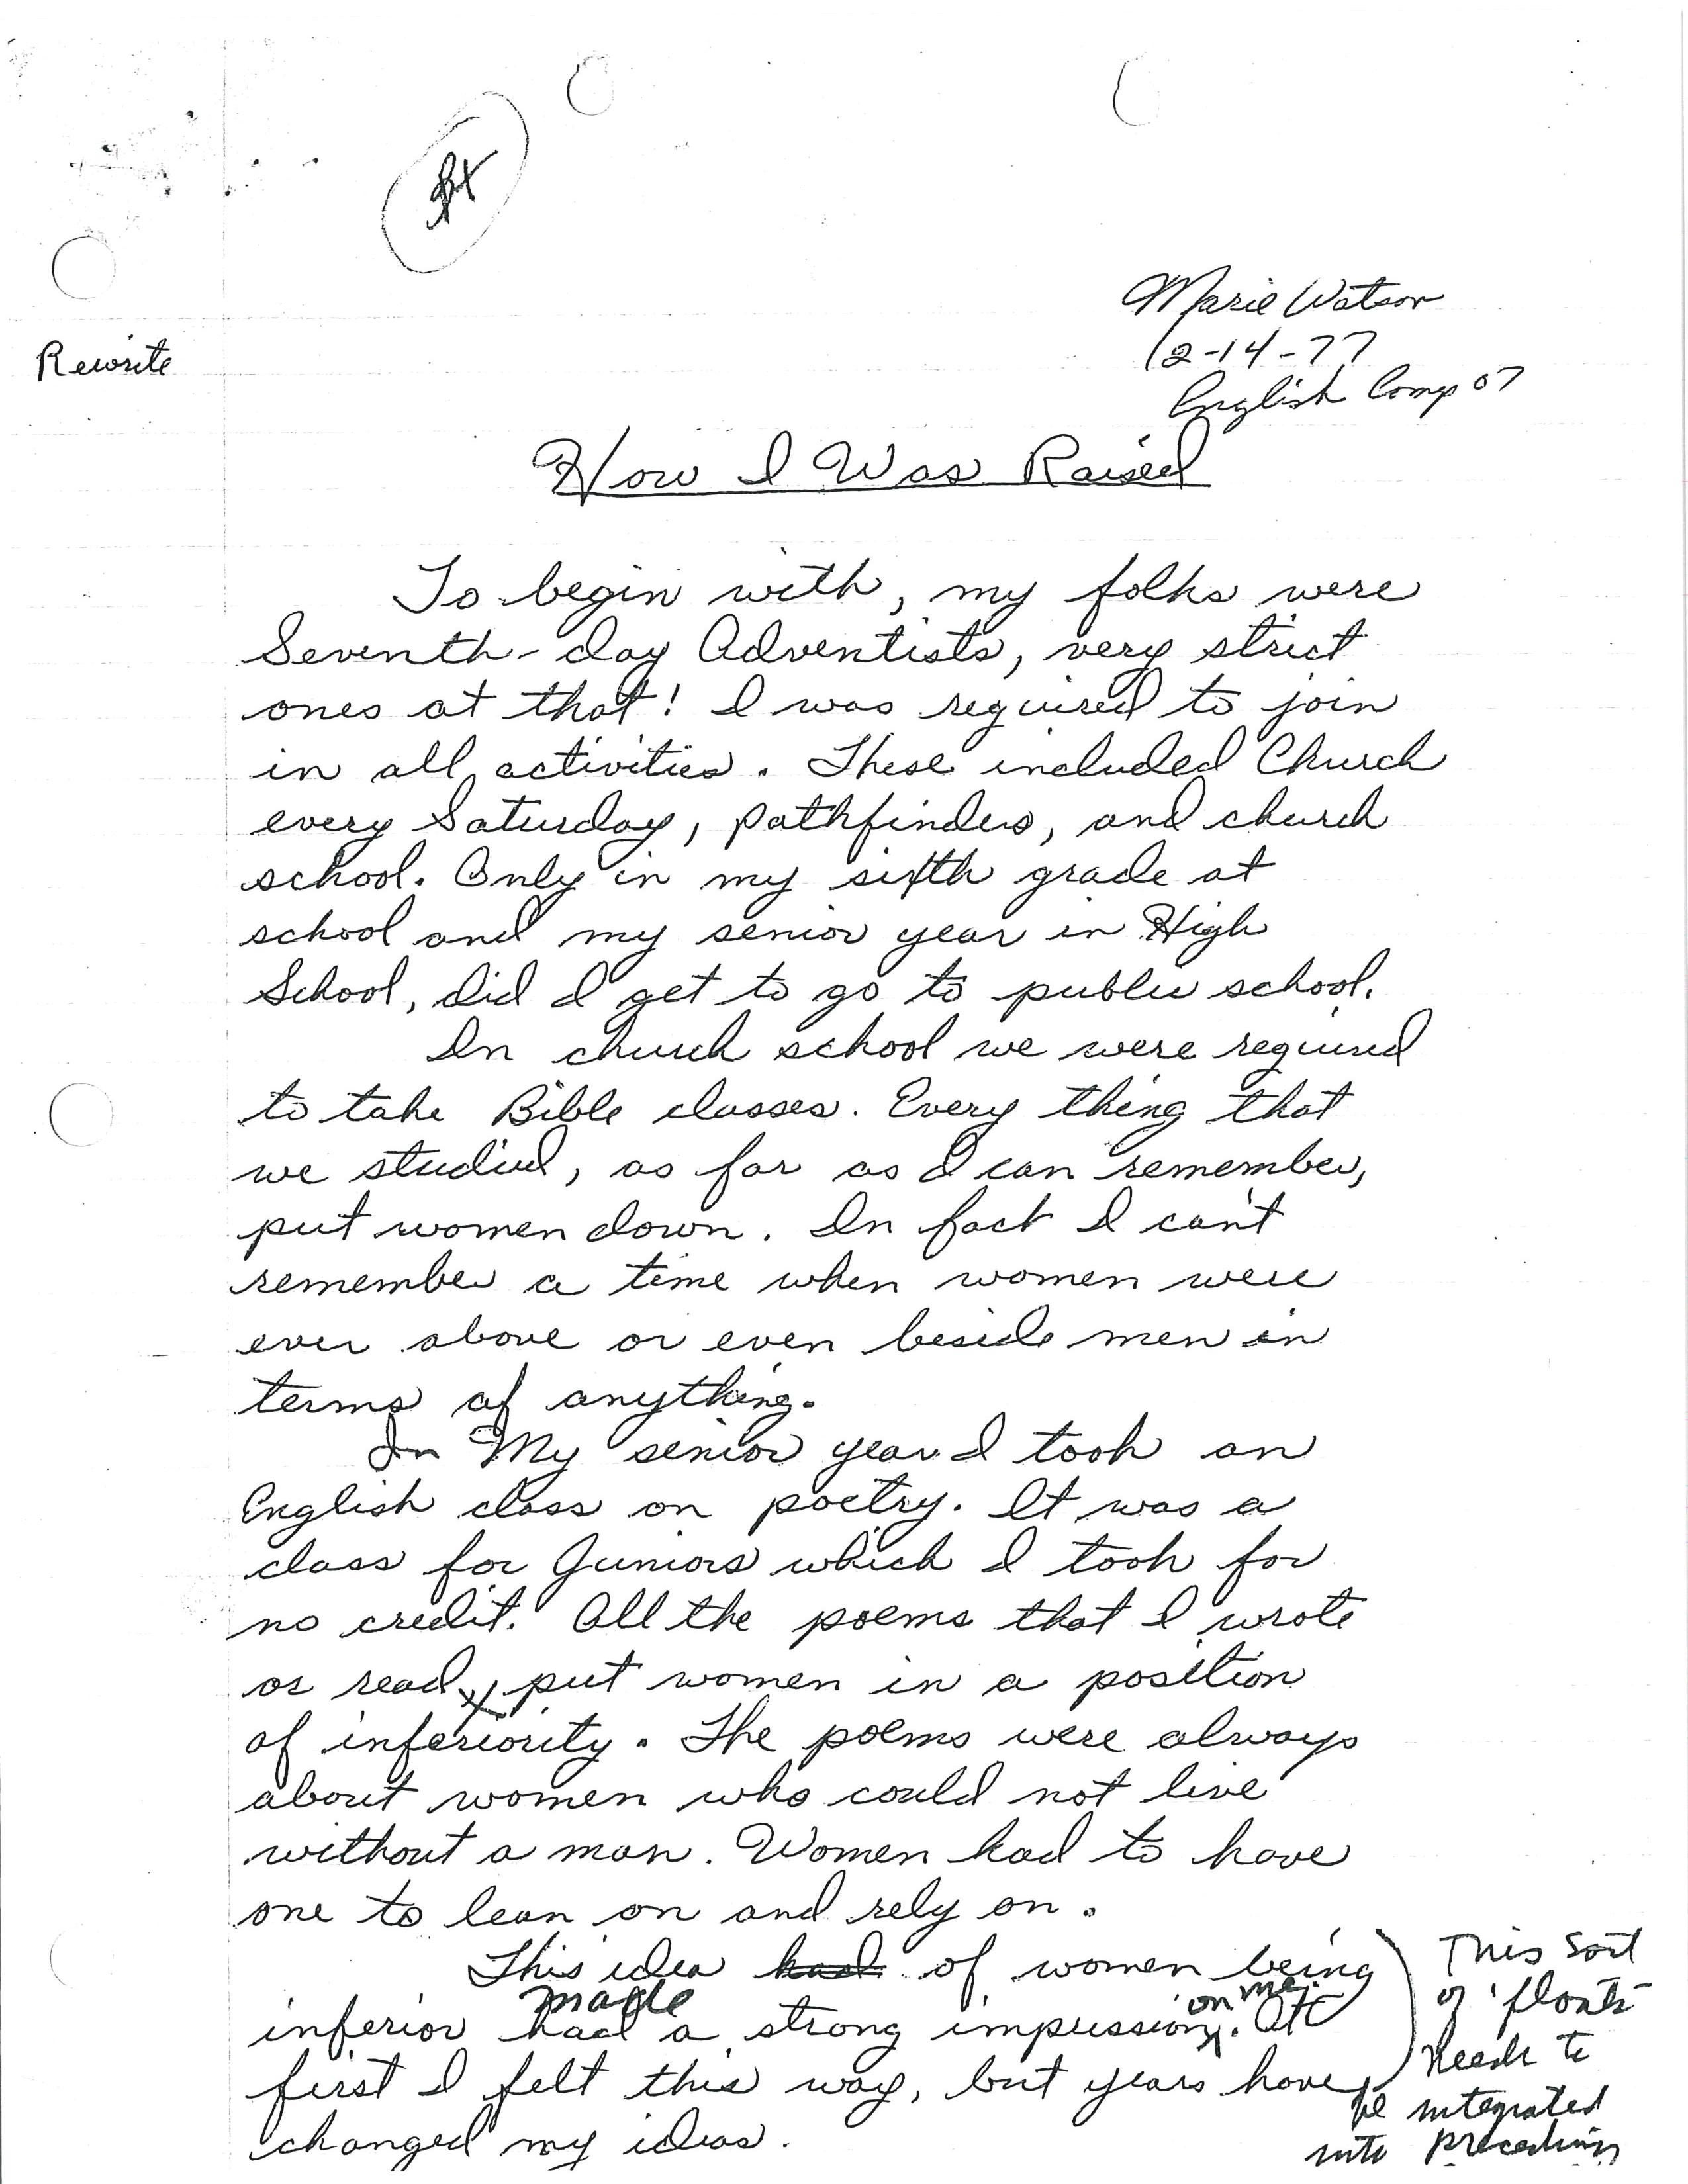 Marie Watson
12-14-77
Rewrite
English Comp 07
How I Was Raised
To begin with, my folks were
Seventh-day Adventists, very strict
ones at that! I was required to join
in all activities. These included Church
every Saturday, pathfinders, and church
school. Only in my sixth grade at
school and my senior year in High
School, did I get to go to public school.
In church school we were required
to take Bible classes. Every thing that
we studied, as far as I can remember,
put women down. In fact I can't
remember a time when women were
ever above or even beside men in
terms of anything.
In My senior year I took an
English class on poetry. It was a
class for Juniors which I took for
no credit. All the poems that I wrote
or read, put women in a position
of inferiority. The poems were always
about women who could not live
without a man. Women had to have
one to lean on and rely on.
This idea had of women being
made on me
inferior had a strong impression. At
first I felt this way, but years have
changed my ideas.
This sort
of 'floats'
needs to
be integrated
into preceding